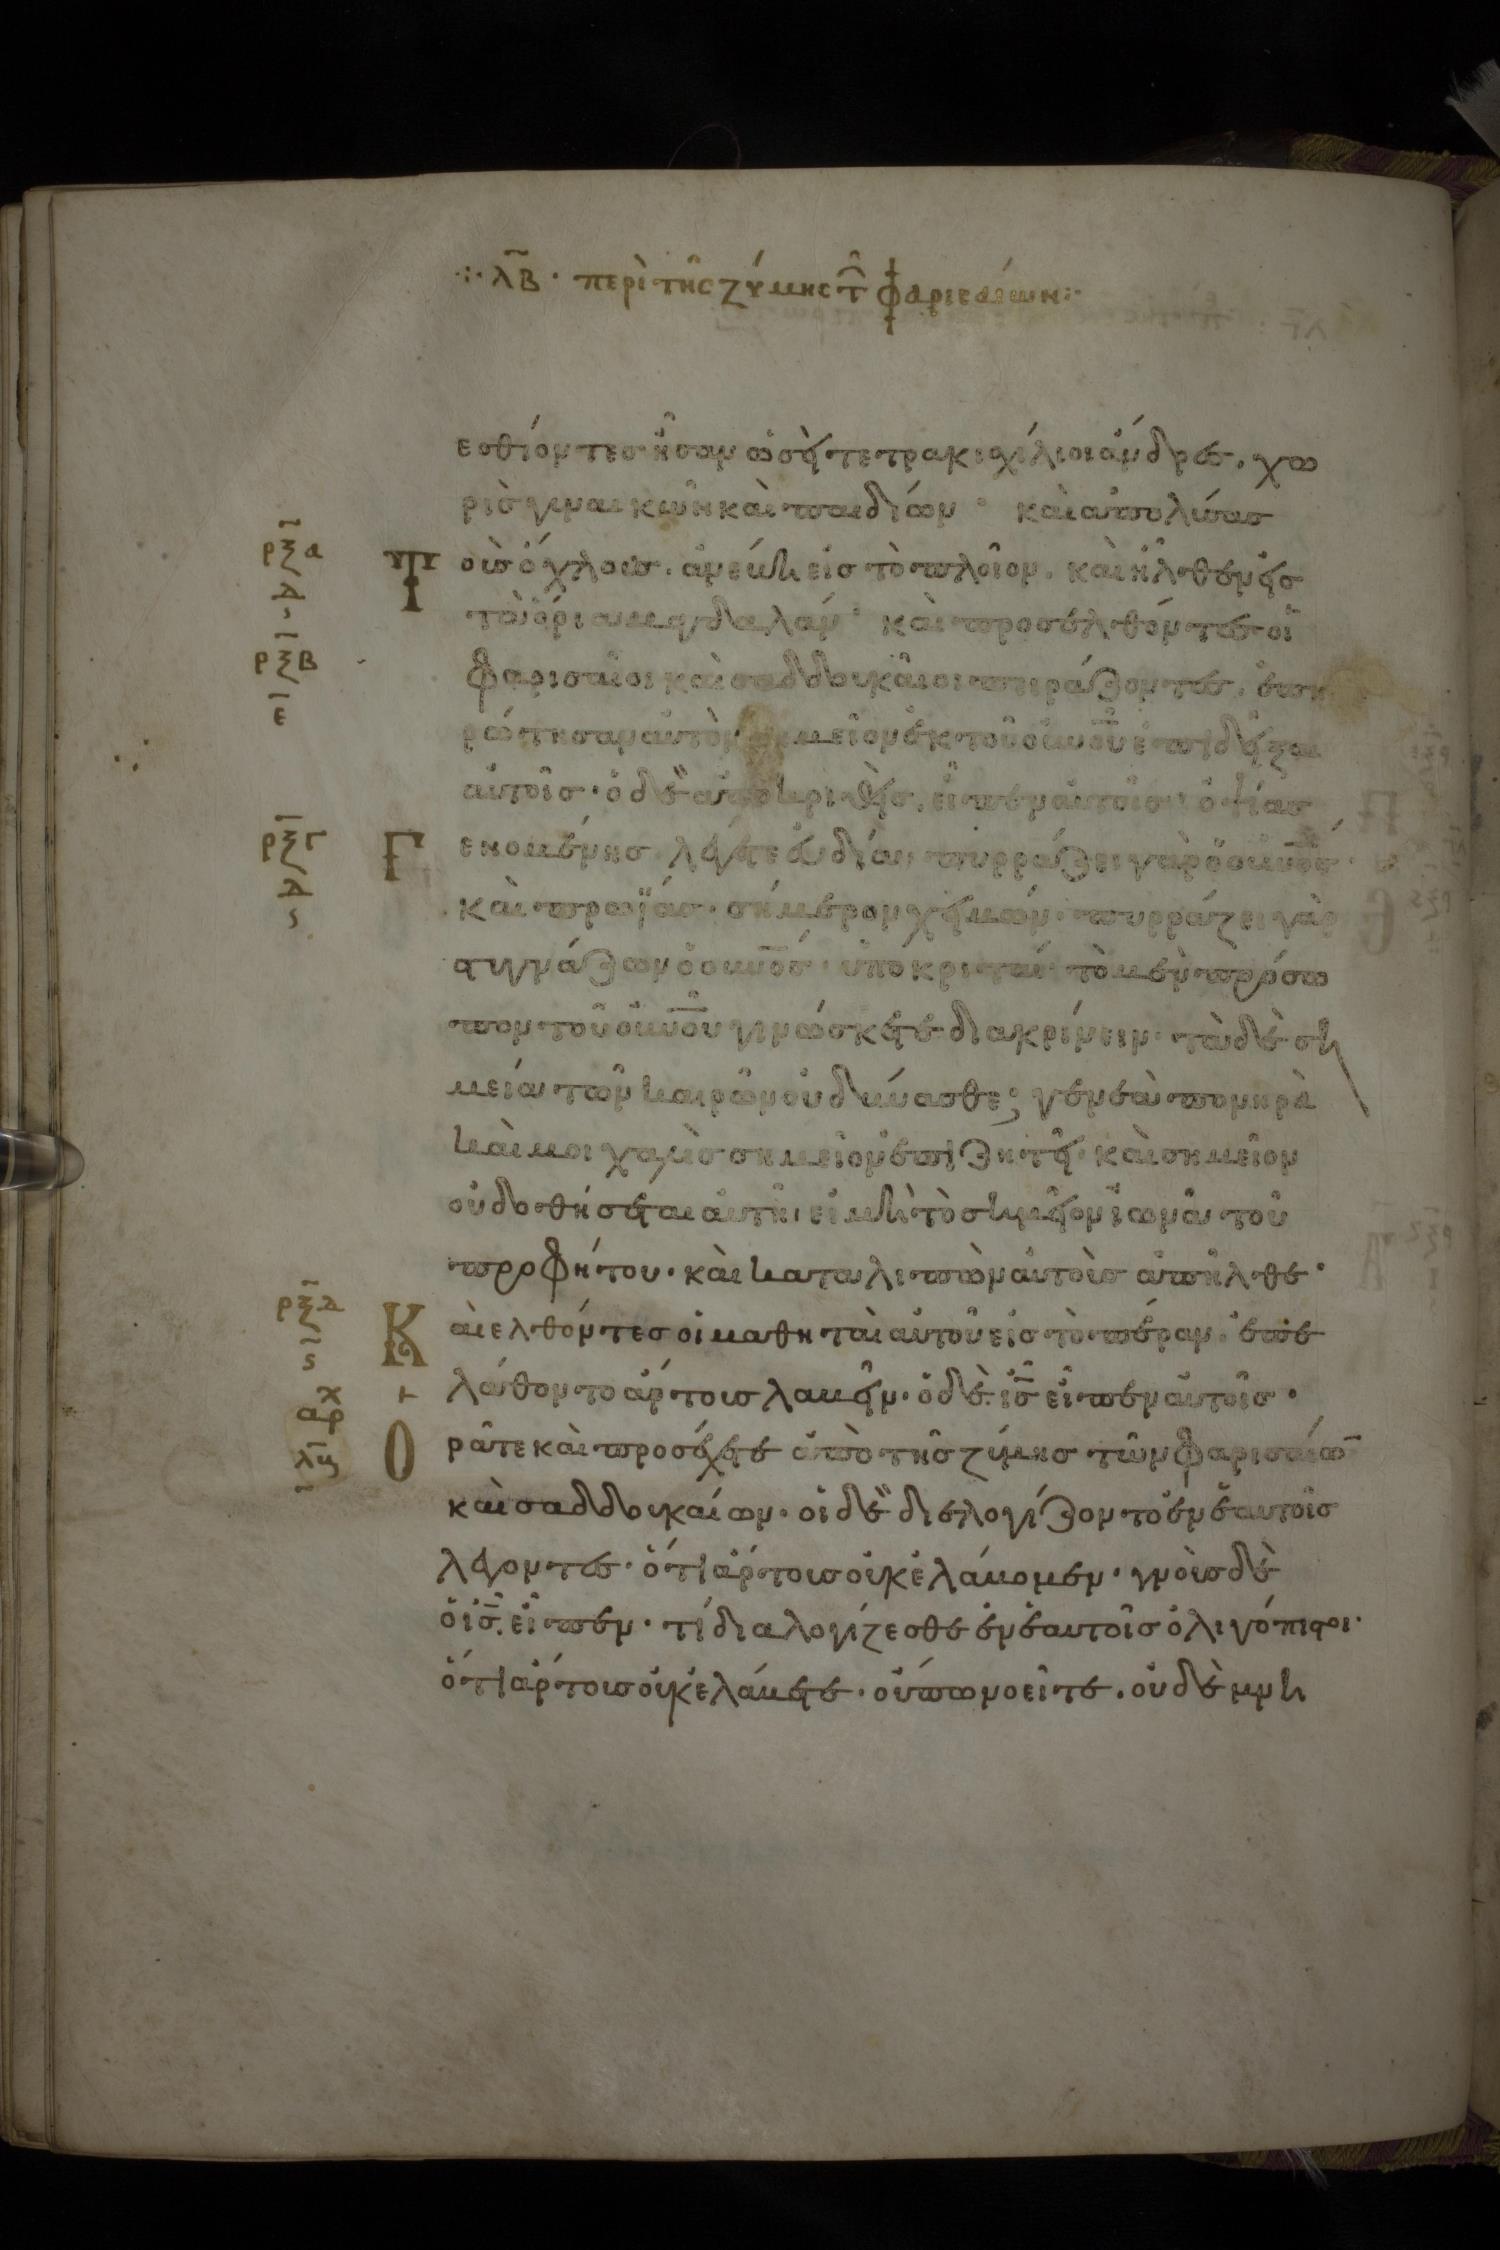 ·:· λβ̅ · περὶ τῆς ζύμης τ̑ Φαρισαίων :·
εσθίοντες ἦσαν ὡσεὶ τετρακισχίλιοι ἄνδρες, χω
ρὶς γυναικῶν καὶ παιδίων · καὶ ἀπολύσας
ρξα δ Τ οὺς ὄχλους, ἀνέβη εἰς τὸ πλοῖον, καὶ ἦλθεν εἰς
τὰ ὅρια μαγδαλάν · καὶ προσελθόντες οἱ
ρξβ ε φαρισαῖοι καὶ σαδδουκαῖοι πειράζοντες, ἐπη
ρώτησαν αὐτὸν σημεῖον ἐκ τοῦ οὐνοῦ ἐπιδεῖξαι
αὐτοῖς · ὁ δὲ ἀποκριθεὶς, εἶπεν αὐτοῖς · ὀψίας
ρξγ ς Γ ενομένης λέγετε εὐδία, πυρράζει γὰρ ὁ οὐνός ·
καὶ πρωΐας · σήμερον χειμών · πυρράζει γὰρ
στυγνάζων ὁ οὐνός · ὑποκριταὶ · τὸ μὲν πρόσω
πον τοῦ οὐνοῦ γινώσκετε διακρίνειν · τὰ δὲ ση
μεῖα τῶν καιρῶν οὐ δύνασθε; γενεὰ πονηρὰ
καὶ μοιχαλὶς σημεῖον ἐπιζητεῖ · καὶ σημεῖον
οὐ δοθήσεται αὐτῆ, εἰ μὴ τὸ σημεῖον ἰωνᾶ τοῦ
προφήτου · καὶ καταλιπὼν αὐτοὺς ἀπῆλθε ·
ρξδ ς Κ αὶ ελθόντες οἱ μαθηταὶ αὐτοῦ εἰς τὸ πέραν, ἐπε
αρχ + λάθοντο ἄρτους λαβεῖν · ὁ δὲ ις̅ εἶπεν αὐτοῖς ·
Ο ρᾶτε καὶ προσέχετε ἀπὸ τῆς ζύμης τῶν φαρισαίω̅
καὶ σαδδουκαίων · οἱ δὲ διελογίζοντο ἐν ἑαυτοῖς
λέγοντες · ὅτι ἄρτους οὐκ ἐλάβομεν · γνοὺς δὲ
ὁ ις̅ εἶπεν · τί διαλογίζεσθε ἐν ἑαυτοῖς ὀλιγόπιστοι ·
ὅτι ἄρτους οὐκ ἐλάβετε · οὔπω νοεῖτε, οὐδὲ μνη